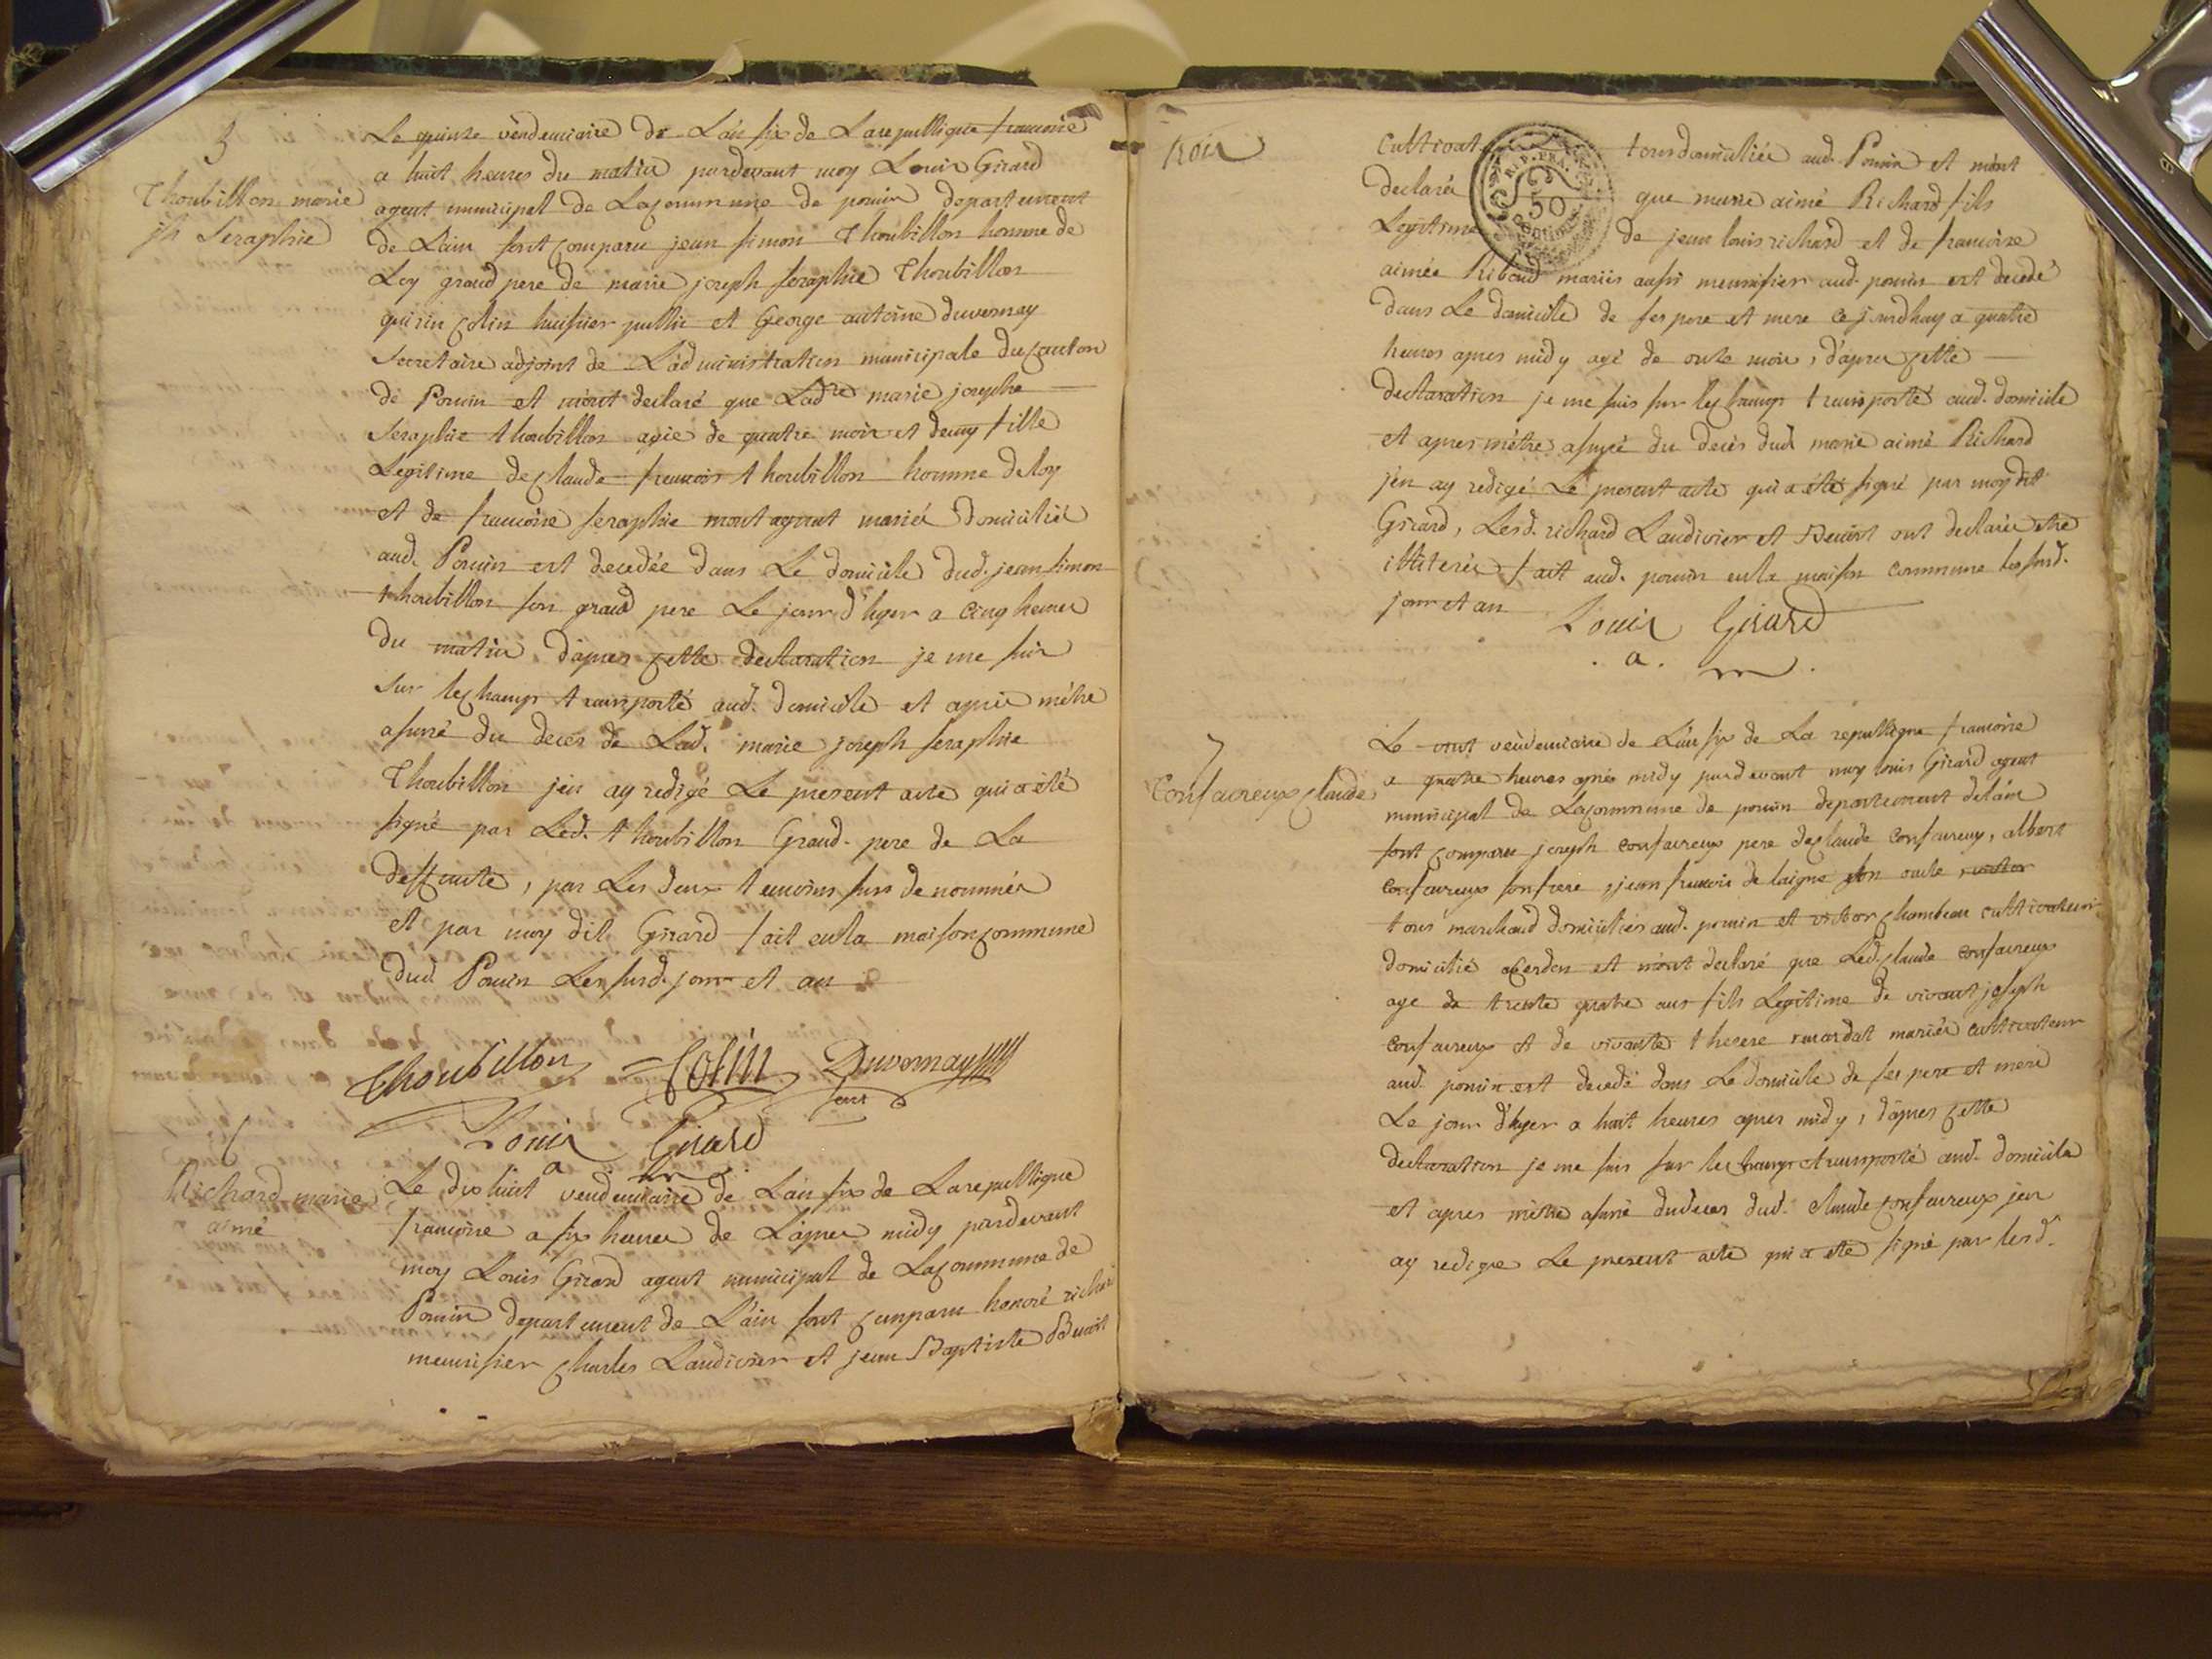 5
Thoubillon marie
jh Seraphie
Le quinze vendemiaire de L'an six de La republique francoise
a huit heures du matin pardevant moy Louis Girard
agent municipal de La commune de poncin departement
de L'ain sont comparu jean simon Thoubillon homme de
Loy grand pere de marie joseph seraphie Thoubillon
quirin Colin huissier public et George antoine duvernay
Secretaire adjoint de L'administration municipale du canton
de Poncin et m'ont declaré que Ladte marie josephe
Seraphie thoubillon agée de quatre mois et demy fille
Legitime de claude francois thoubillon homme de loy
et de francoise seraphie montagniat mariés domiciliés
aud. Poncin est decedée dans Le domicile dud. jean simon
thoubillon son grand pere Le jour d'hyer a cinq heures
du matin d'apres cette declaration je me suis
sur le champs transporté aud. domicile et aprés m'être
assuré du deces de Lad. marie joseph seraphie
Thoubillon j'en ay redigé Le present acte qui a été
signé par Led. thoubillon Grand pere de La
deffunte, par Les deux temoins sus denommés
et par moy dit Girard fait en la maison commune
dud Poncin Les susd. jour et an
Thoubillon Colin Duvernay
Louis Girard
a m
6
Richard marie
aimé
Le dix huit vendemiaire de L'an six de La republique
francoise a six heures de L'apres midy pardevant
moy Louis Girard agent municipal de La commune de
Poncin departement de L'ain sont comparu honoré richard
meunisier charles Laudivier et jean Baptiste Benoit
trois
cultivat tous domiciliés aud. Poncin et m'ont
declarés que marie aimé Richard fils
Legitime de jean louis richard et de francoise
aimée Ribaud mariés aussi meunisier aud. poncin est decedé
dans Le domicile de ses pere et mere ce jourdhuy a quatre
heures apres midy agé de onze mois, d'apres cette
declaration je me suis sur le champs transporté aud. domicile
et apres m'être assuré du decés dud marie aimé Richard
j'en ay redigé Le present acte qui a été signé par moydit
Girard, Lesd. richard Laudivier et Benoit ont declarés etre
illiterés fait aud. poncin en la maison commune les susd.
jour et an
Louis Girard
a. m.
7
Confavreux claude
Le vint vendemiaire de L'an six de La republique francoise
a quatre heures aprés midy pardevant moy louis Girard agent
municipal de La commune de poncin departement de lain
sont comparu joseph confavreux pere de claude confavreux, albert
confavreux son frere, jean francois de laigne son oncle
tous marchand domiciliés aud. poncin et victor chambeau cultivateur
domicilié a cerdon et m'ont declaré que Led. claude confavreux
age de trente quatre ans fils Legitime de vivant joseph
confavreux et de vivante therese mariés cultivateur
aud. poncin est decedé dans Le domicile de ses pere et mere
Le jour d'hyer a huit heures apres midy, d'apres cette
declaration je me suis sur le champs transporté aud. domicile
et apres m'etre assuré du deces dud. claude confavreux j'en
ay redigé Le present acte qui a été signé par lesd.
REP. FRA.
50